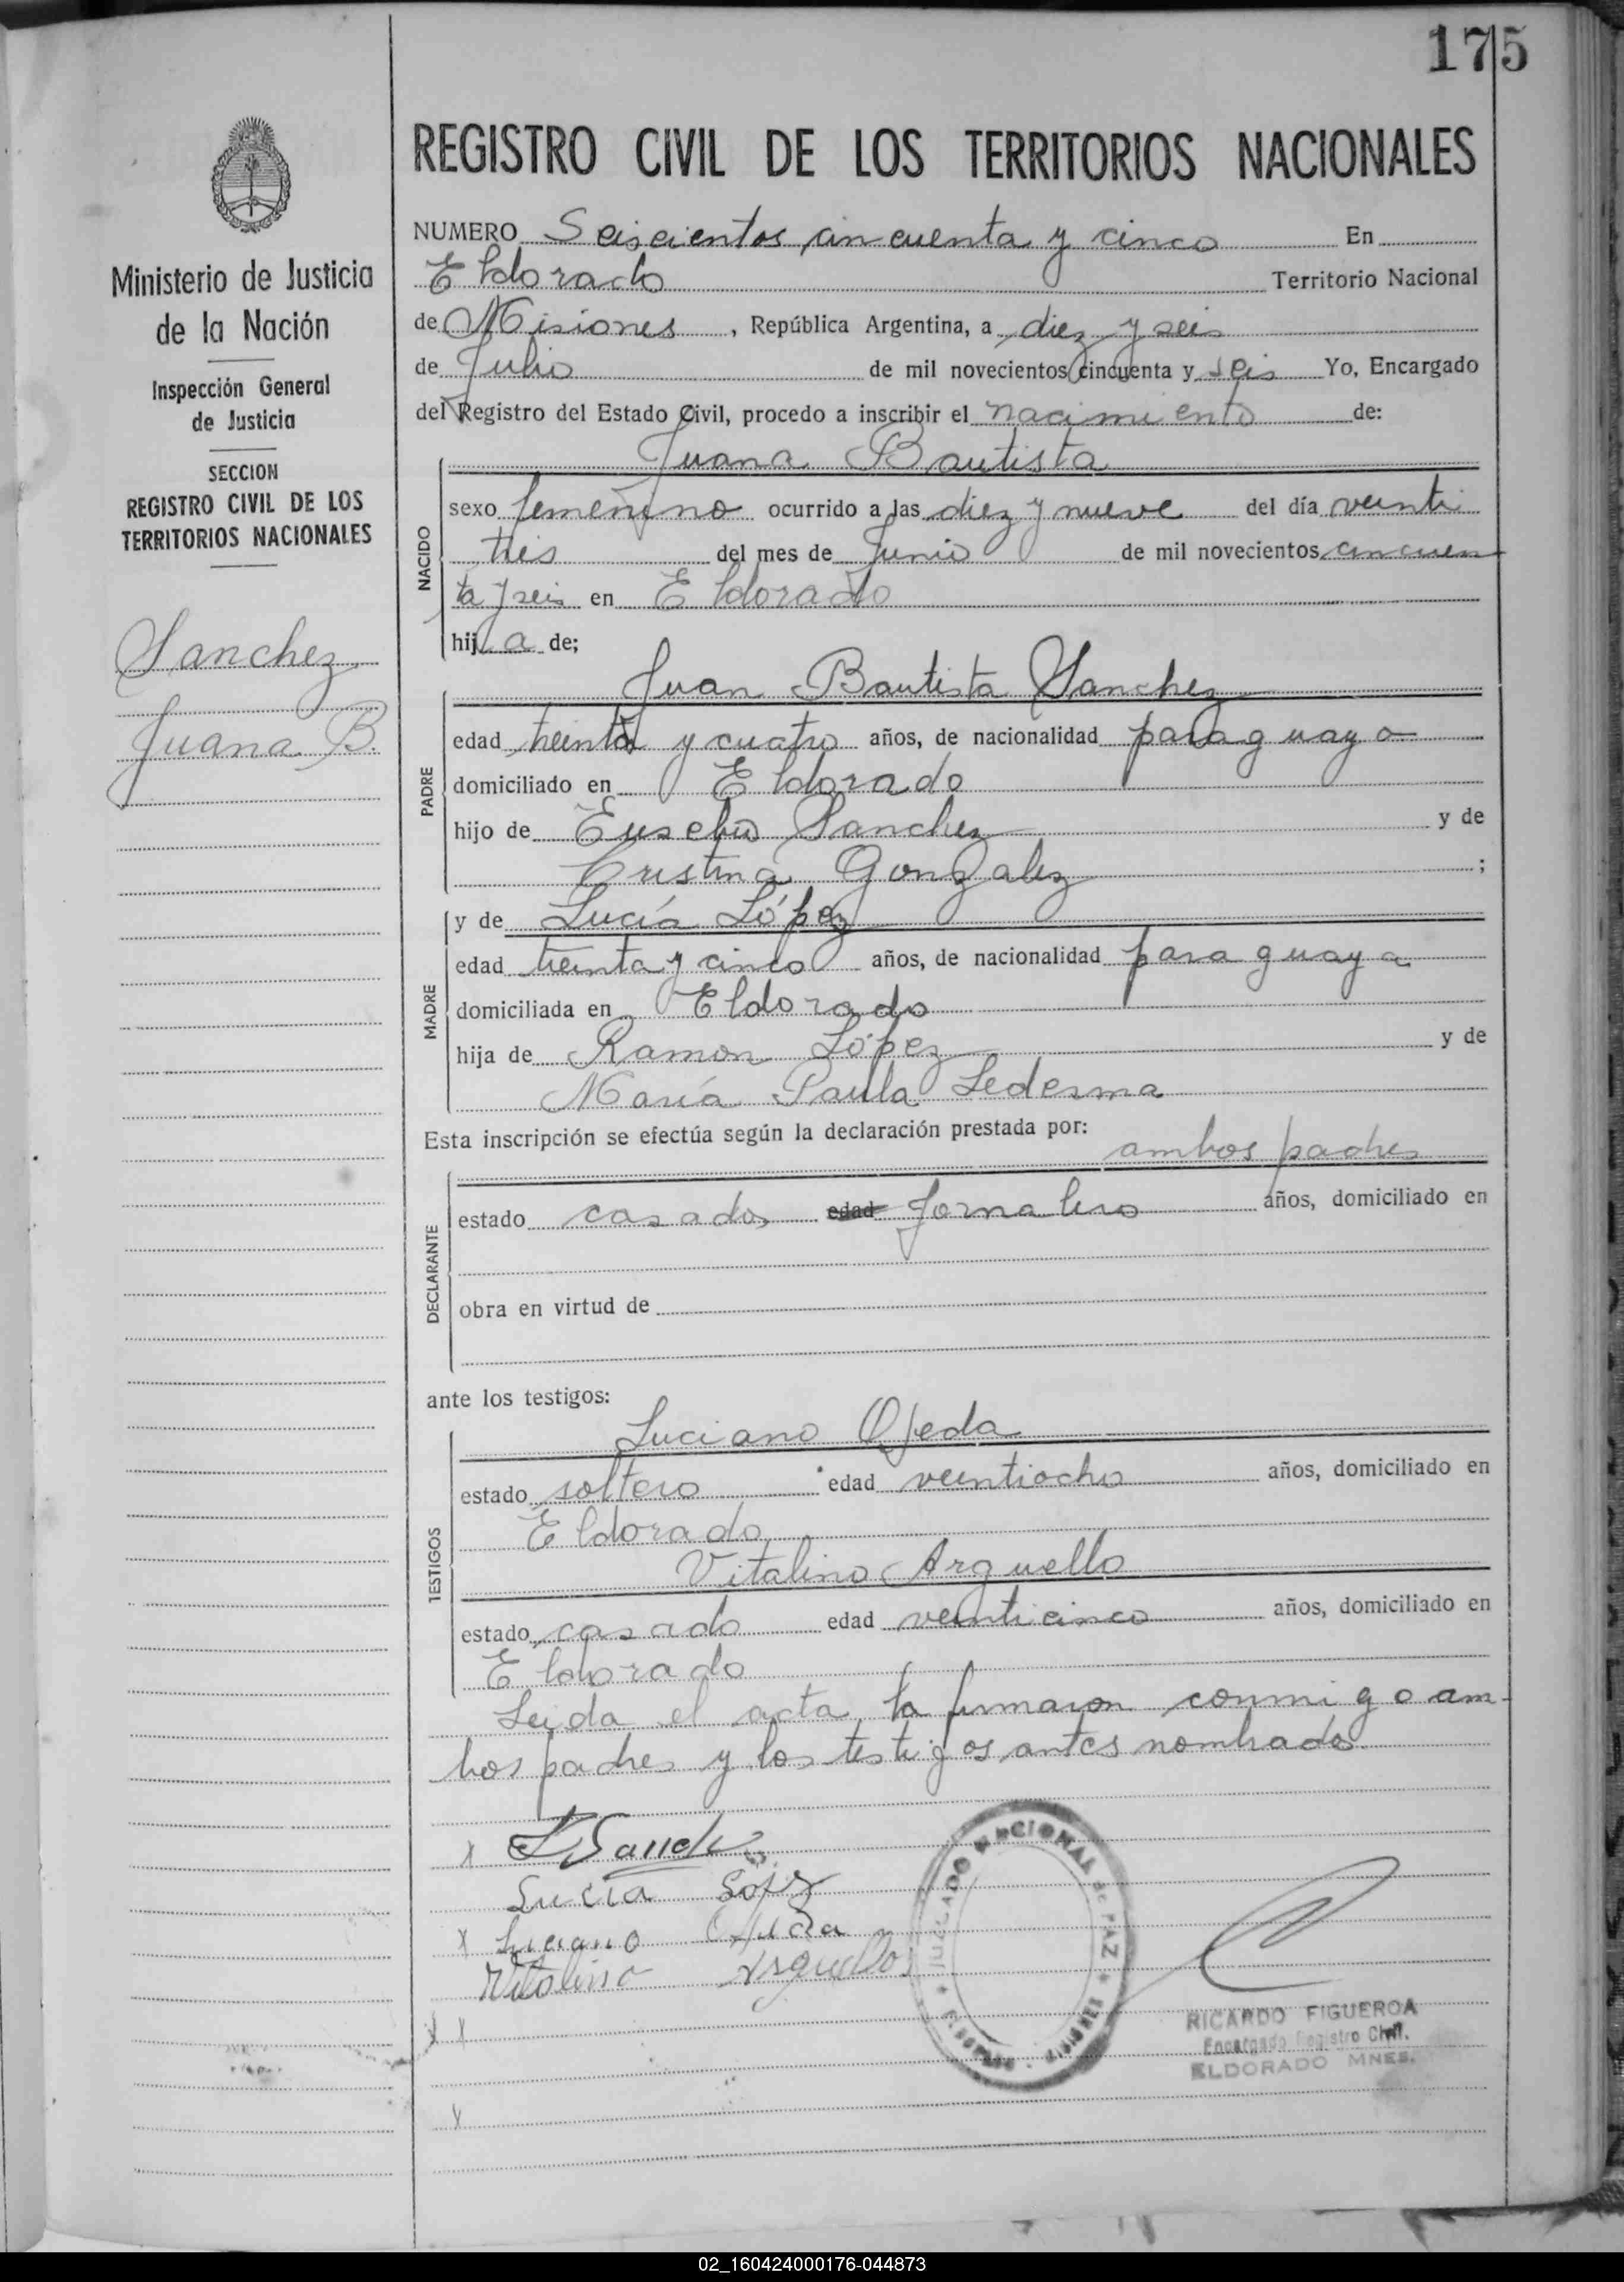 175
REGISTRO CIVIL DE LOS TERRITORIOS NACIONALES
Ministerio de Justicia
de la Nación
Inspección General
de Justicia
SECCION
REGISTRO CIVIL DE LOS
TERRITORIOS NACIONALES
Sanchez
Juana B.
NUMERO Seiscientos cincuenta y cinco En
Eldorado Territorio Nacional
de Misiones, República Argentina, a diez y seis
de Julio de mil novecientos cincuenta y seis Yo, Encargado
del Registro del Estado Civil, procedo a inscribir el nacimiento de:
Juana Bautista
NACIDO
sexo femenino ocurrido a las diez y nueve del día veinti
tres del mes de Junio de mil novecientos cincuen
ta y seis en Eldorado
hija de;
Juan Bautista Sanchez
PADRE
edad treinta y cuatro años, de nacionalidad paraguayo
domiciliado en Eldorado
hijo de Eusebio Sanchez y de
Cristina Gonzalez ;
y de Lucía López
MADRE
edad treinta y cinco años, de nacionalidad paraguaya
domiciliada en Eldorado
hija de Ramon López y de
María Paula Ledesma
Esta inscripción se efectúa según la declaración prestada por:
ambos padres
DECLARANTE
estado casados edad Jornalero años, domiciliado en
obra en virtud de
ante los testigos:
Luciano Ojeda
TESTIGOS
estado soltero edad veintiocho años, domiciliado en
Eldorado
Vitalino Arguello
estado casado edad veinticinco años, domiciliado en
Eldorado
Leida el acta la firmaron conmigo am-
bos padres y los testigos antes nombrado
x J Sanchez
Lucia Lopez
x Luciano Ojeda
Vitalino Arguello
x x
x
JUZGADO NACIONAL de PAZ
RICARDO FIGUEROA
Encargado Registro Civil.
ELDORADO MNES.
02_160424000176-044873